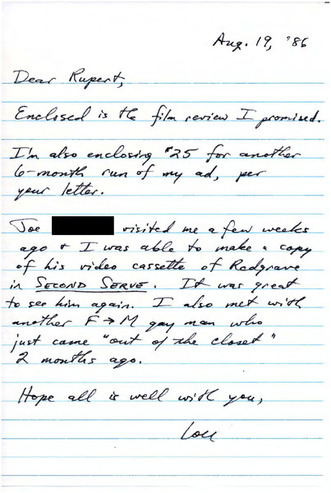 Aug. 19, '86
Dear Rupert,
Enclosed is the film review I promised.
I'm also enclosing $25 for another
6-month run of my ad, per
your letter.
Joe visited me a few weeks
ago + I was able to make a copy
of his video cassette of Redgrave
in SECOND SERVE. It was great
to see him again. I also met with
another F→M gay man who
just came "out of the closet"
2 months ago.
Hope all is well with you,
Lou